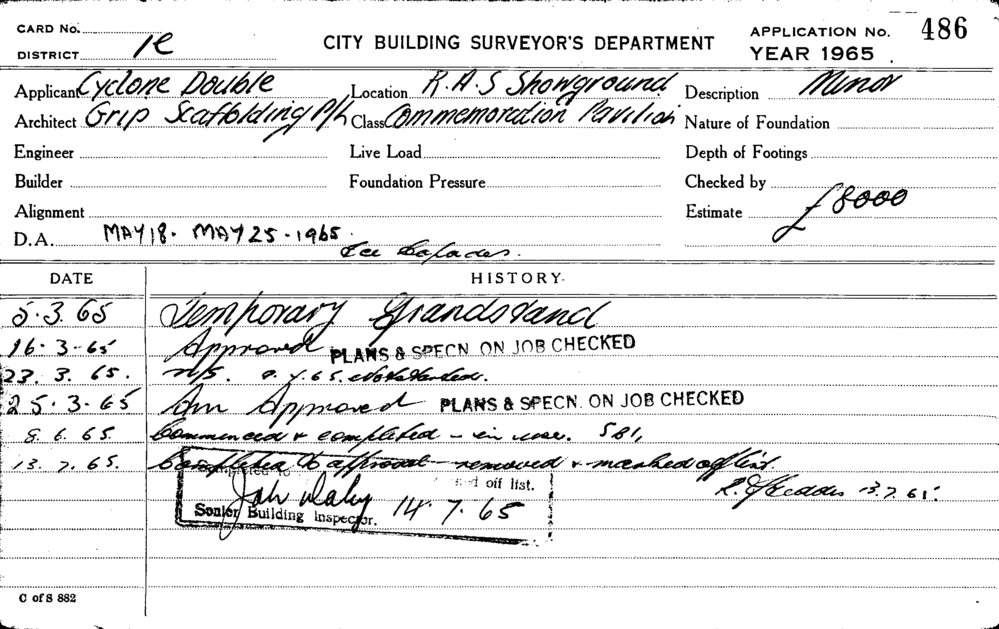 CARD No. APPLICATION No. 486
DISTRICT 1e CITY BUILDING SURVEYOR'S DEPARTMENT YEAR 1965
Applicant Cyclone Double Location R.A.S Showground Description Minor
Architect Grip Scaffolding P/L Class Commemoration Pavilion Nature of Foundation
Engineer Live Load Depth of Footings
Builder Foundation Pressure Checked by
Alignment Estimate £8000
D.A. MAY 18. MAY 25-1965.
DATE HISTORY
5.3.65 Temporary Grandstand
16-3-65 Approved PLANS & SPECN. ON JOB CHECKED
23.3.65. N/S. 9.4.65. Not started.
25.3.65 Am Approved PLANS & SPECN. ON JOB CHECKED
8.6.65. Commenced & completed - in use. SBI,
13.7.65. Completed to approval - removed & marked off list.
off list. 13.7.65.
14.7.65
Senior Building Inspector.
C of S 882